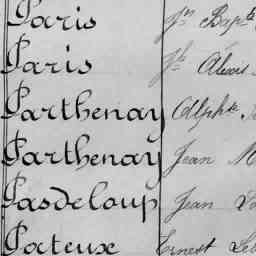 Paris Jn Bapte
Paris Jh Alexis
Parthenay Alphse
Parthenay Jean M
Pasdeloup Jean
Pateux Ernest